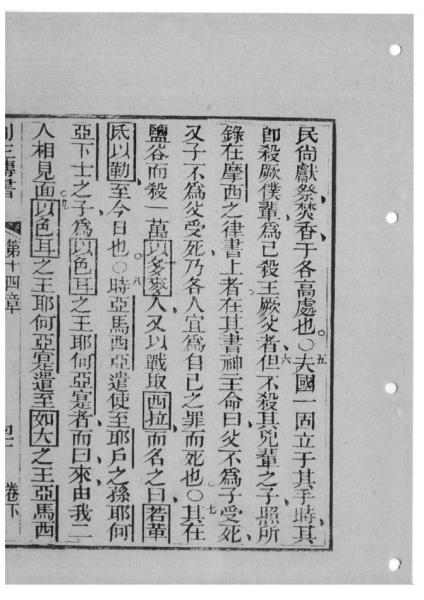 民尚獻祭焚香于各高處也○五夫國一固立于其手時其
卽殺厥僕輩為已殺王厥父者六但不殺其兇輩之子照所
錄在摩西之律書上者在其書神王命曰父不為子受死
又子不為父受死乃各人宜為自己之罪而死也○七其在
鹽谷而殺一萬以多麥人又以戰取西拉而名之曰若革
氐以勒至今日也○八時亞馬西亞遣使至耶戶之孫耶何
亞下士之子為以色耳之王耶何亞寔者而曰來由我二
人相見面九以色耳之王耶何亞寔遣至如大之王亞馬西
列王傳書 第十四章 卷下